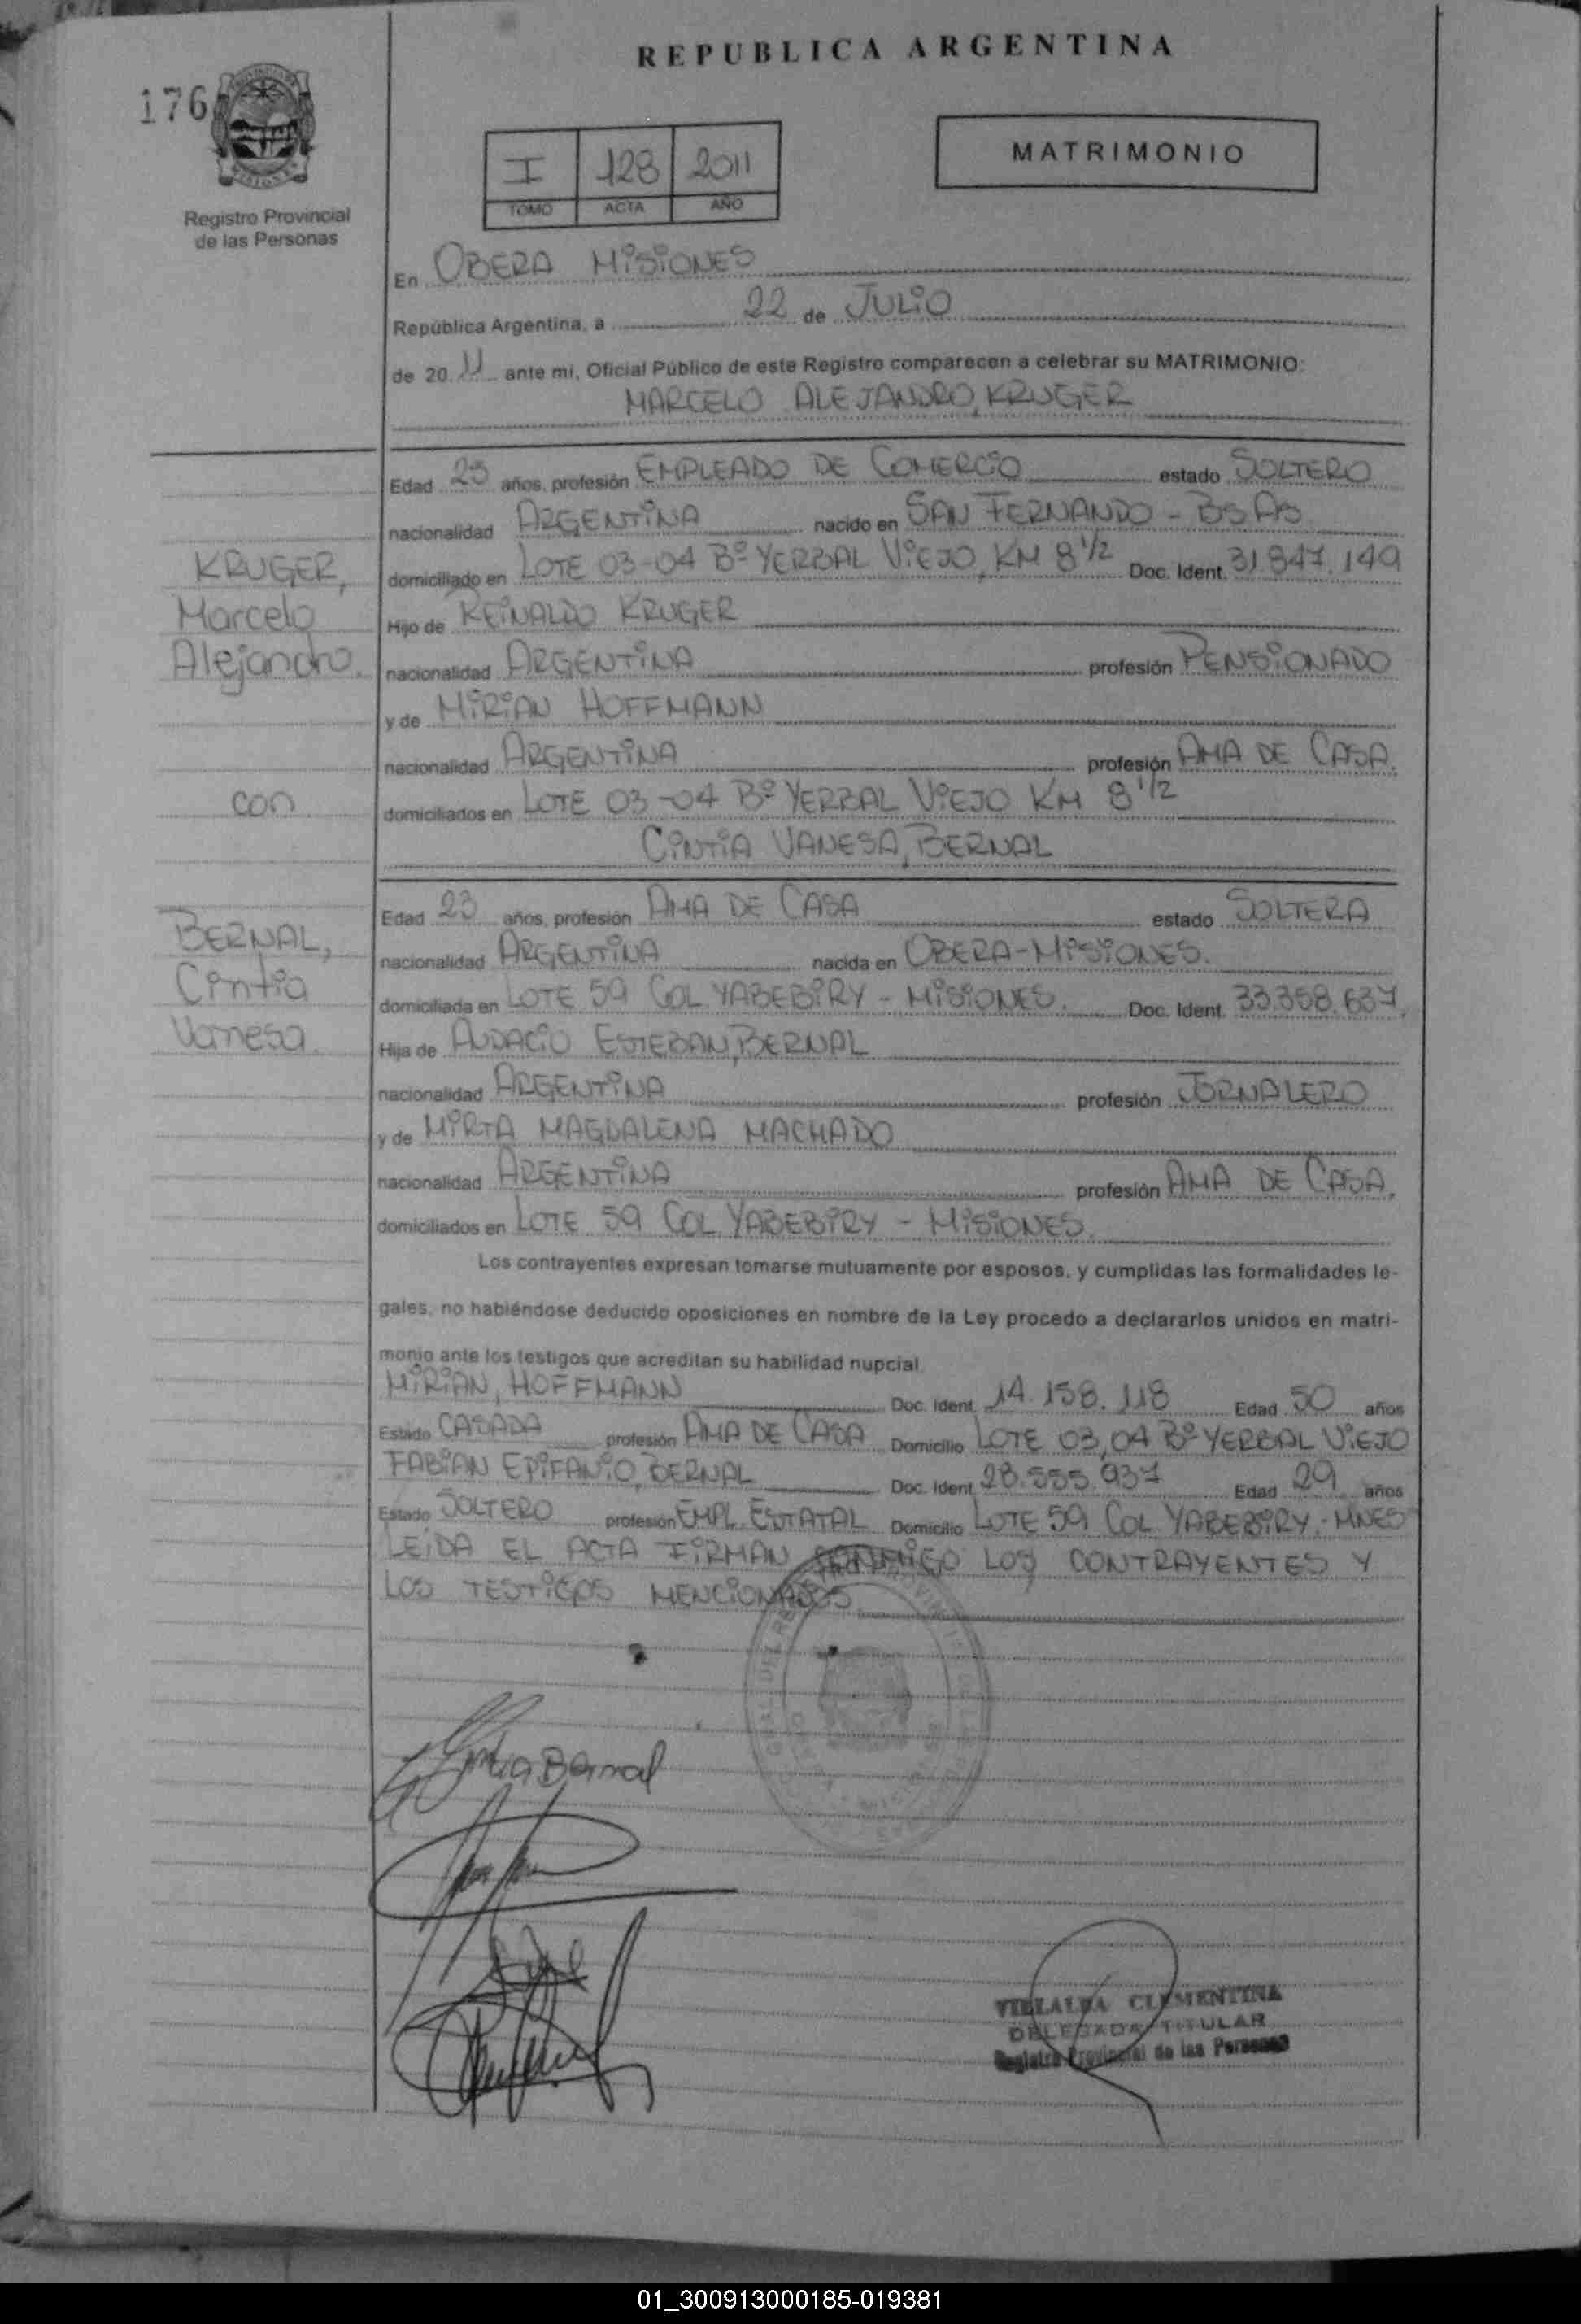 REPUBLICA ARGENTINA
176
MATRIMONIO
I 128 2011
TOMO ACTA AÑO
Registro Provincial
de las Personas
En OBERA MISIONES
República Argentina, a 22 de JULIO
de 20 11 ante mi, Oficial Público de este Registro comparecen a celebrar su MATRIMONIO:
MARCELO ALEJANDRO, KRUGER
Edad 25 años, profesión EMPLEADO DE COMERCIO estado SOLTERO
nacionalidad ARGENTINA nacido en SAN FERNANDO - BS AS
KRUGER,
domiciliado en LOTE 03-04 Bº YERBAL VIEJO, KM 8 1/2 Doc. Ident. 31.847.149
Marcelo
Hijo de REINALDO KRUGER
Alejandro.
nacionalidad ARGENTINA profesión PENSIONADO
y de MIRIAN HOFFMANN
nacionalidad ARGENTINA profesión AMA DE CASA.
con
domiciliados en LOTE 03-04 Bº YERBAL VIEJO KM 8 1/2
CINTIA VANESA, BERNAL
Edad 23 años, profesión AMA DE CASA estado SOLTERA
BERNAL,
nacionalidad ARGENTINA nacida en OBERA-MISIONES.
Cintia
domiciliada en LOTE 59 COL YABEBIRY - MISIONES. Doc. Ident. 33.358.637.
Vanesa.
Hija de AUDACIO ESTEBAN, BERNAL
nacionalidad ARGENTINA profesión JORNALERO
y de MIRTA MAGDALENA MACHADO
nacionalidad ARGENTINA profesión AMA DE CASA.
domiciliados en LOTE 59 COL YABEBIRY - MISIONES.
Los contrayentes expresan tomarse mutuamente por esposos, y cumplidas las formalidades le-
gales, no habiéndose deducido oposiciones en nombre de la Ley procedo a declararlos unidos en matri-
monio ante los testigos que acreditan su habilidad nupcial
MIRIAN, HOFFMANN Doc. Ident. 14.158.118 Edad 50 años
Estado CASADA profesión AMA DE CASA Domicilio LOTE 03,04 Bº YERBAL VIEJO
FABIAN EPIFANIO, BERNAL Doc. Ident. 28.555.937 Edad 29 años
Estado SOLTERO profesión EMPL. ESTATAL Domicilio LOTE 59 COL YABEBIRY - MNES
LEIDA EL ACTA FIRMAN CONMIGO LOS CONTRAYENTES Y
LOS TESTIGOS MENCIONADOS
Cintia Bernal
VILLALBA CLEMENTINA
DELEGADA TITULAR
Registro Provincial de las Personas
01_300913000185-019381